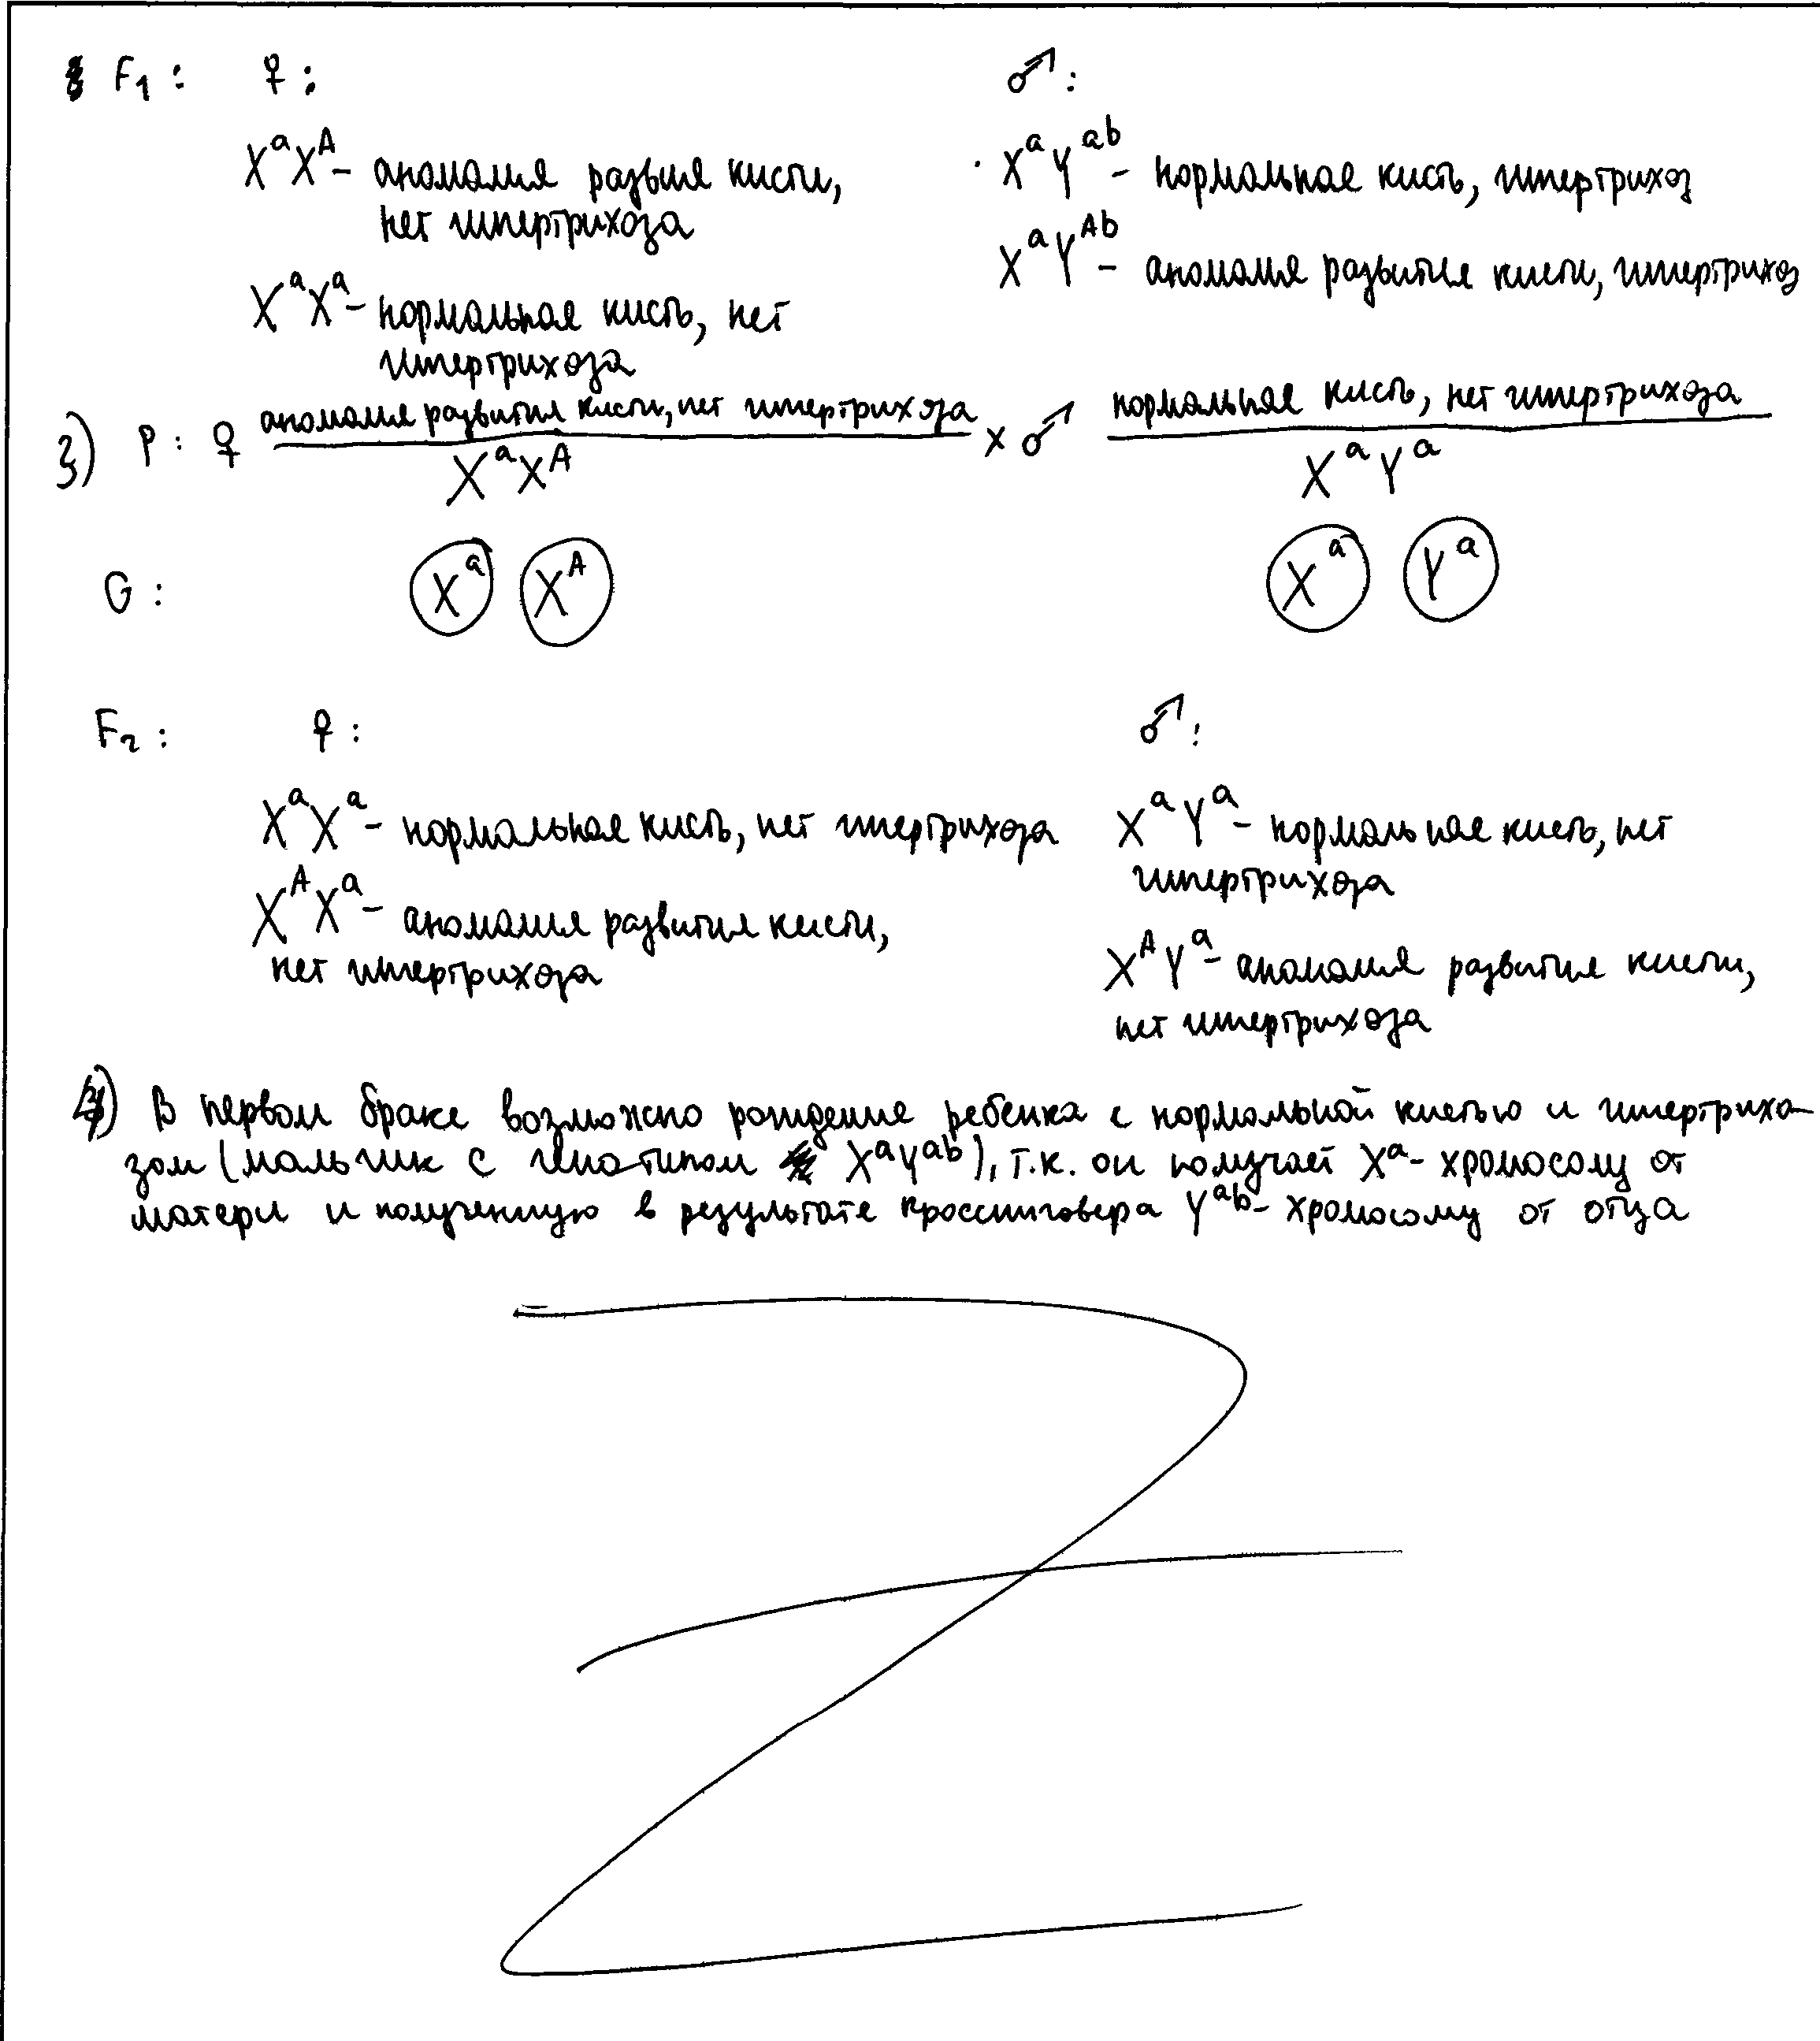 F₁ : ♀ : ♂ :
XᵃXᴬ – аномалия развия кисти, XᵃYᵃᵇ – нормальная кисть, гипертрихоз
нет гипертрихоза XᵃYᴬᵇ – аномалия развития кисти, гипертрихоз
XᵃXᵃ – нормальная кисть, нет
гипертрихоза
3) P : ♀ аномалия развития кисти, нет гипертрихоза x ♂ нормальная кисть, нет гипертрихоза
XᵃXᴬ XᵃYᵃ
G : Xᵃ Xᴬ Xᵃ Yᵃ
F₂ : ♀ : ♂ :
XᵃXᵃ – нормальная кисть, нет гипертрихоза XᵃYᵃ – нормальная кисть, нет
гипертрихоза
XᴬXᵃ – аномалия развития кисти,
нет гипертрихоза XᴬYᵃ – аномалия развития кисти,
нет гипертрихоза
4) В первом браке возможно рождение ребенка с нормальной кистью и гипертрихо-
зом (мальчик с генотипом XᵃYᵃᵇ), т.к. он получает Xᵃ- хромосому от
матери и полученную в результате кроссинговера Yᵃᵇ- хромосому от отца